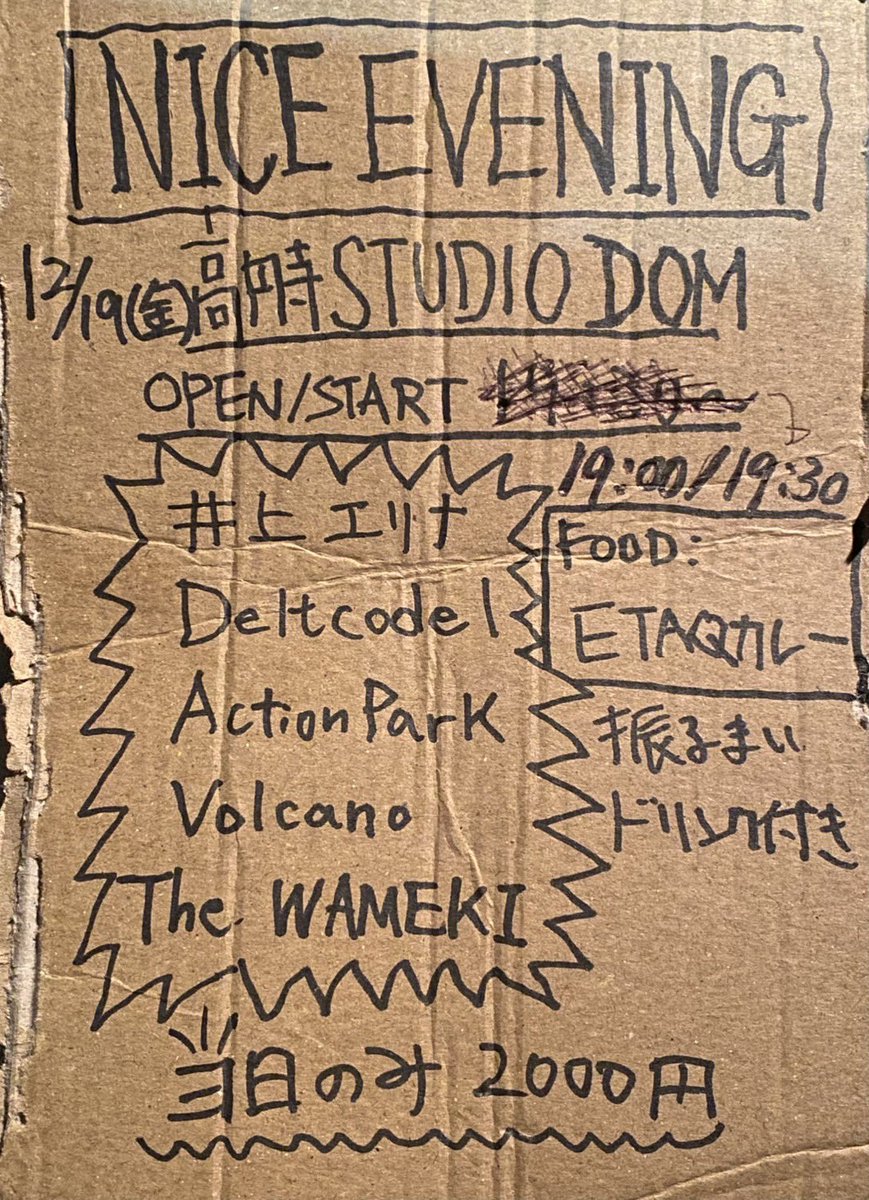 NICE EVENING
12/19(金)高円寺 STUDIO DOM
OPEN/START
19:00/19:30
井上エリナ
Deltcode1
Action Park
Volcano
The WAMEKI
FOOD:
ETAQカレー
振るまい
ドリンク付き
当日のみ 2000円